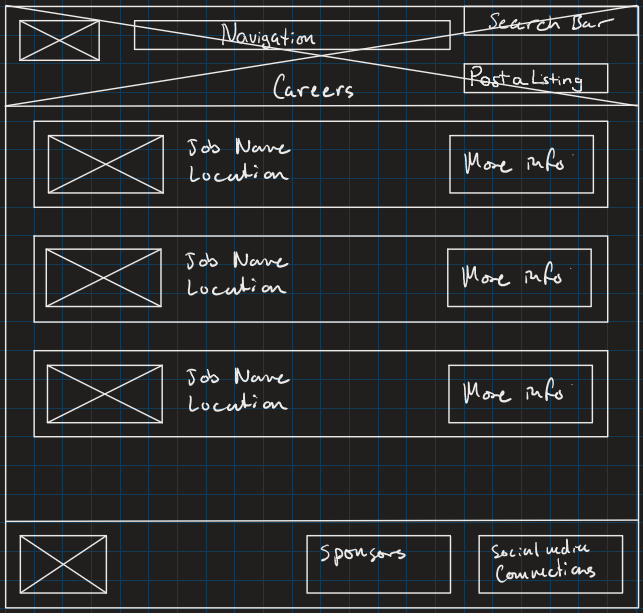 Search Bar
Navigation
Post a Listing
Careers
Job Name
Location
More info
Job Name
Location
More info
Job Name
Location
More info
Sponsors
Social media
Connections